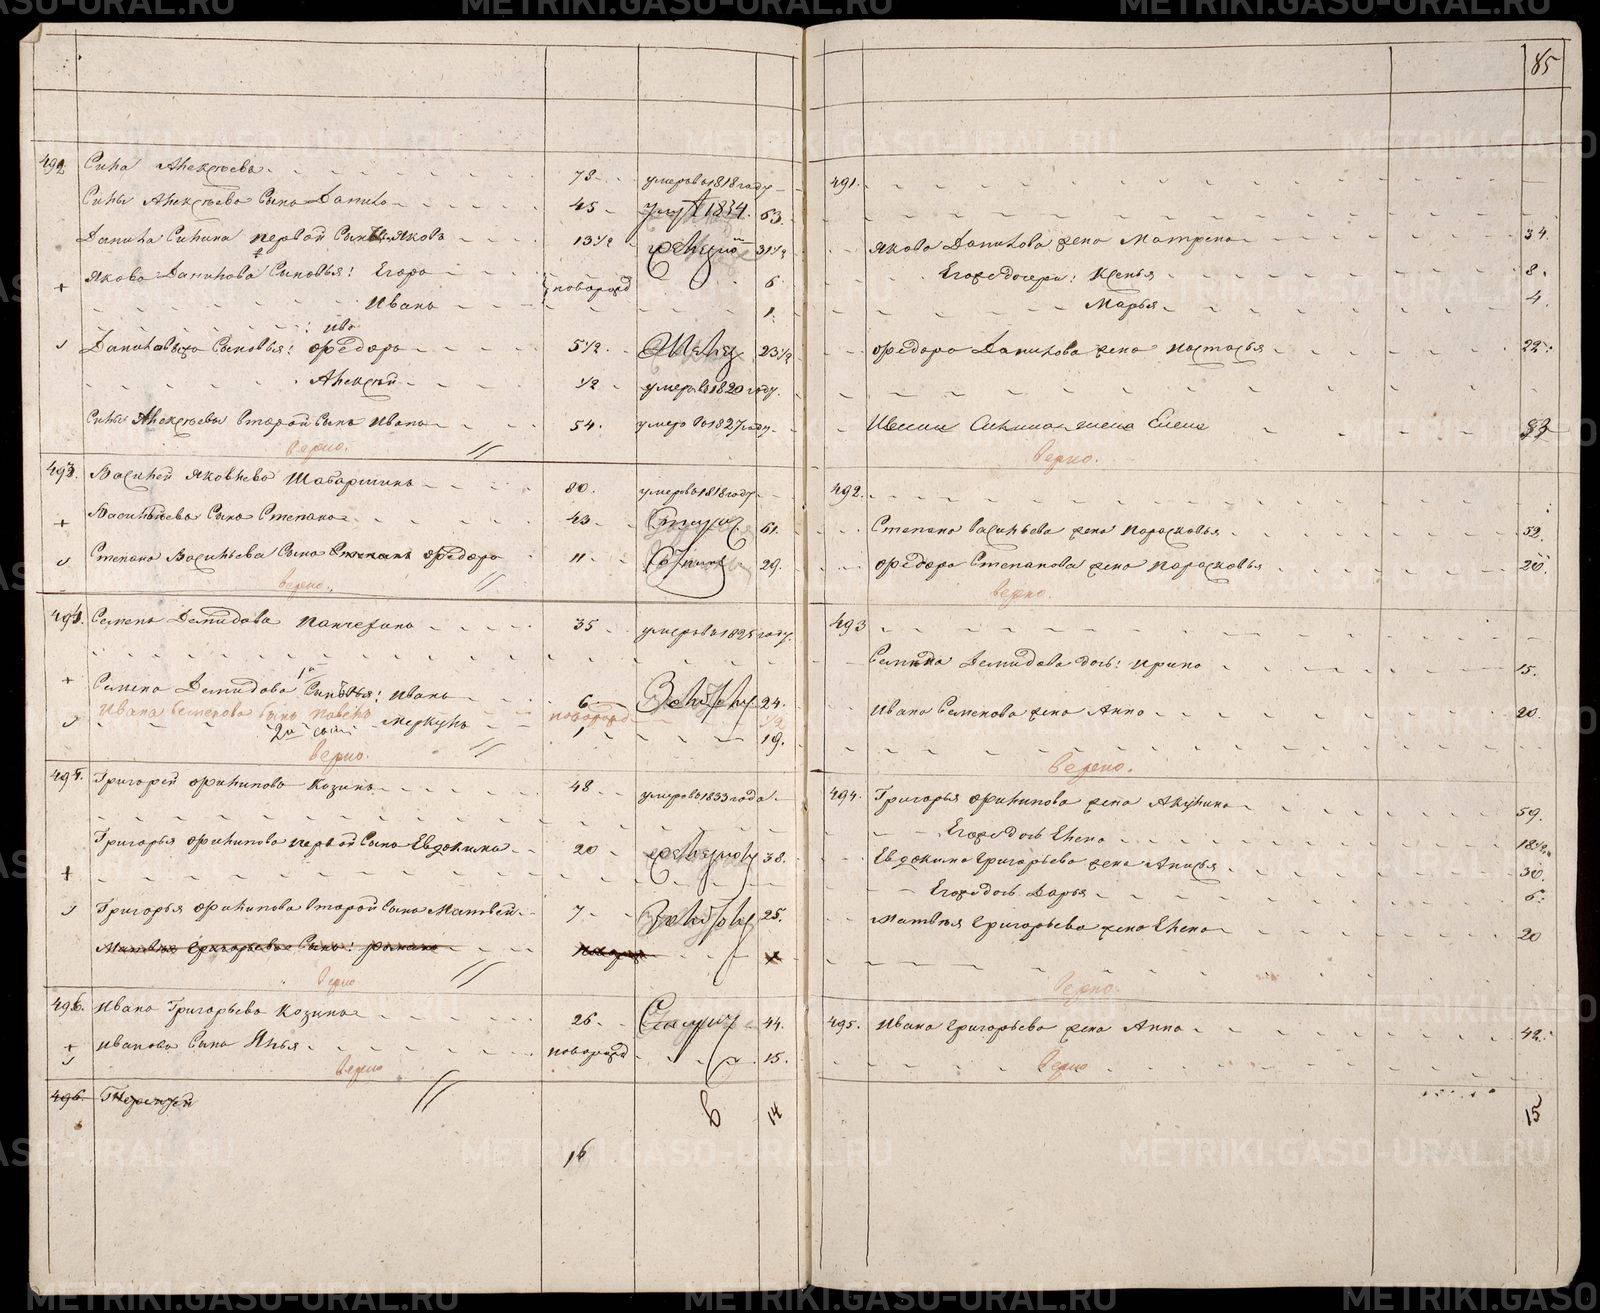 85
492 Сила Алексѣевъ 73 умеръ въ 1818 году
Силы Алексѣева Сынъ Данило 45 1834. 63
Данила Силина первой Сынъ Яковъ 13 1/2 31 1/2
Якова Данилова Сыновья: Егоръ новорожд 6
Иванъ 1
Даниловы Сыновья: Ѳедоръ 5 1/2 23 1/2
Алексѣй 1/2 умеръ въ 1820 году
Силы Алексѣева второй Сынъ Иванъ 54 умеръ въ 1827 году
верно.
493. Василей Яковлевъ Шабаршинъ 80. умеръ въ 1818 году
Васильевъ Сынъ Степанъ 43 61.
Степана Васильева Сынъ Степанъ Ѳедоръ 11 29.
верно.
494. Семенъ Демидовъ 35 умеръ въ 1825 году.
Семена Демидова 1й Сыновья: Иванъ 6 24.
Ивана Семенова сынъ Павелъ новорожд 1/2
2й сынъ Меркулъ 1 19.
верно.
495. Григорей Филиповъ Козинъ 48 умеръ въ 1833 года
Григорья Филипова первой Сынъ Евдокимъ 20 38.
Григорья Филипова второй Сынъ Матвей 7 25.
Матвѣя Григорьева Сынъ: Романъ
верно
496. Иванъ Григорьевъ Козинъ 26 44.
Ивановъ Сынъ Илья новорожд 15.
верно
496. Терентей
14
16
491.
Якова Данилова жена Матрена 34.
Егоже дочери: Ксенья 8.
Марья 4.
Ѳедора Данилова жена Настасья 22
Ивана Силина жена Елена
верно.
492.
Степана Васильева жена Парасковья 52.
Ѳедора Степанова жена Парасковья 20.
верно.
493
Семена Демидова дочь: Ирина 15.
Ивана Семенова жена Анна 20.
верно.
494. Григорья Филипова жена Акулина 59.
Егоже дочь Елена 18 1/2
Евдокима Григорьева жена Анисья 30.
Егоже дочь Дарья 6.
Матвѣя Григорьева жена Елена 20
верно.
495. Ивана Григорьева жена Анна 42.
верно
15
METRIKI.GASO-URAL.RU